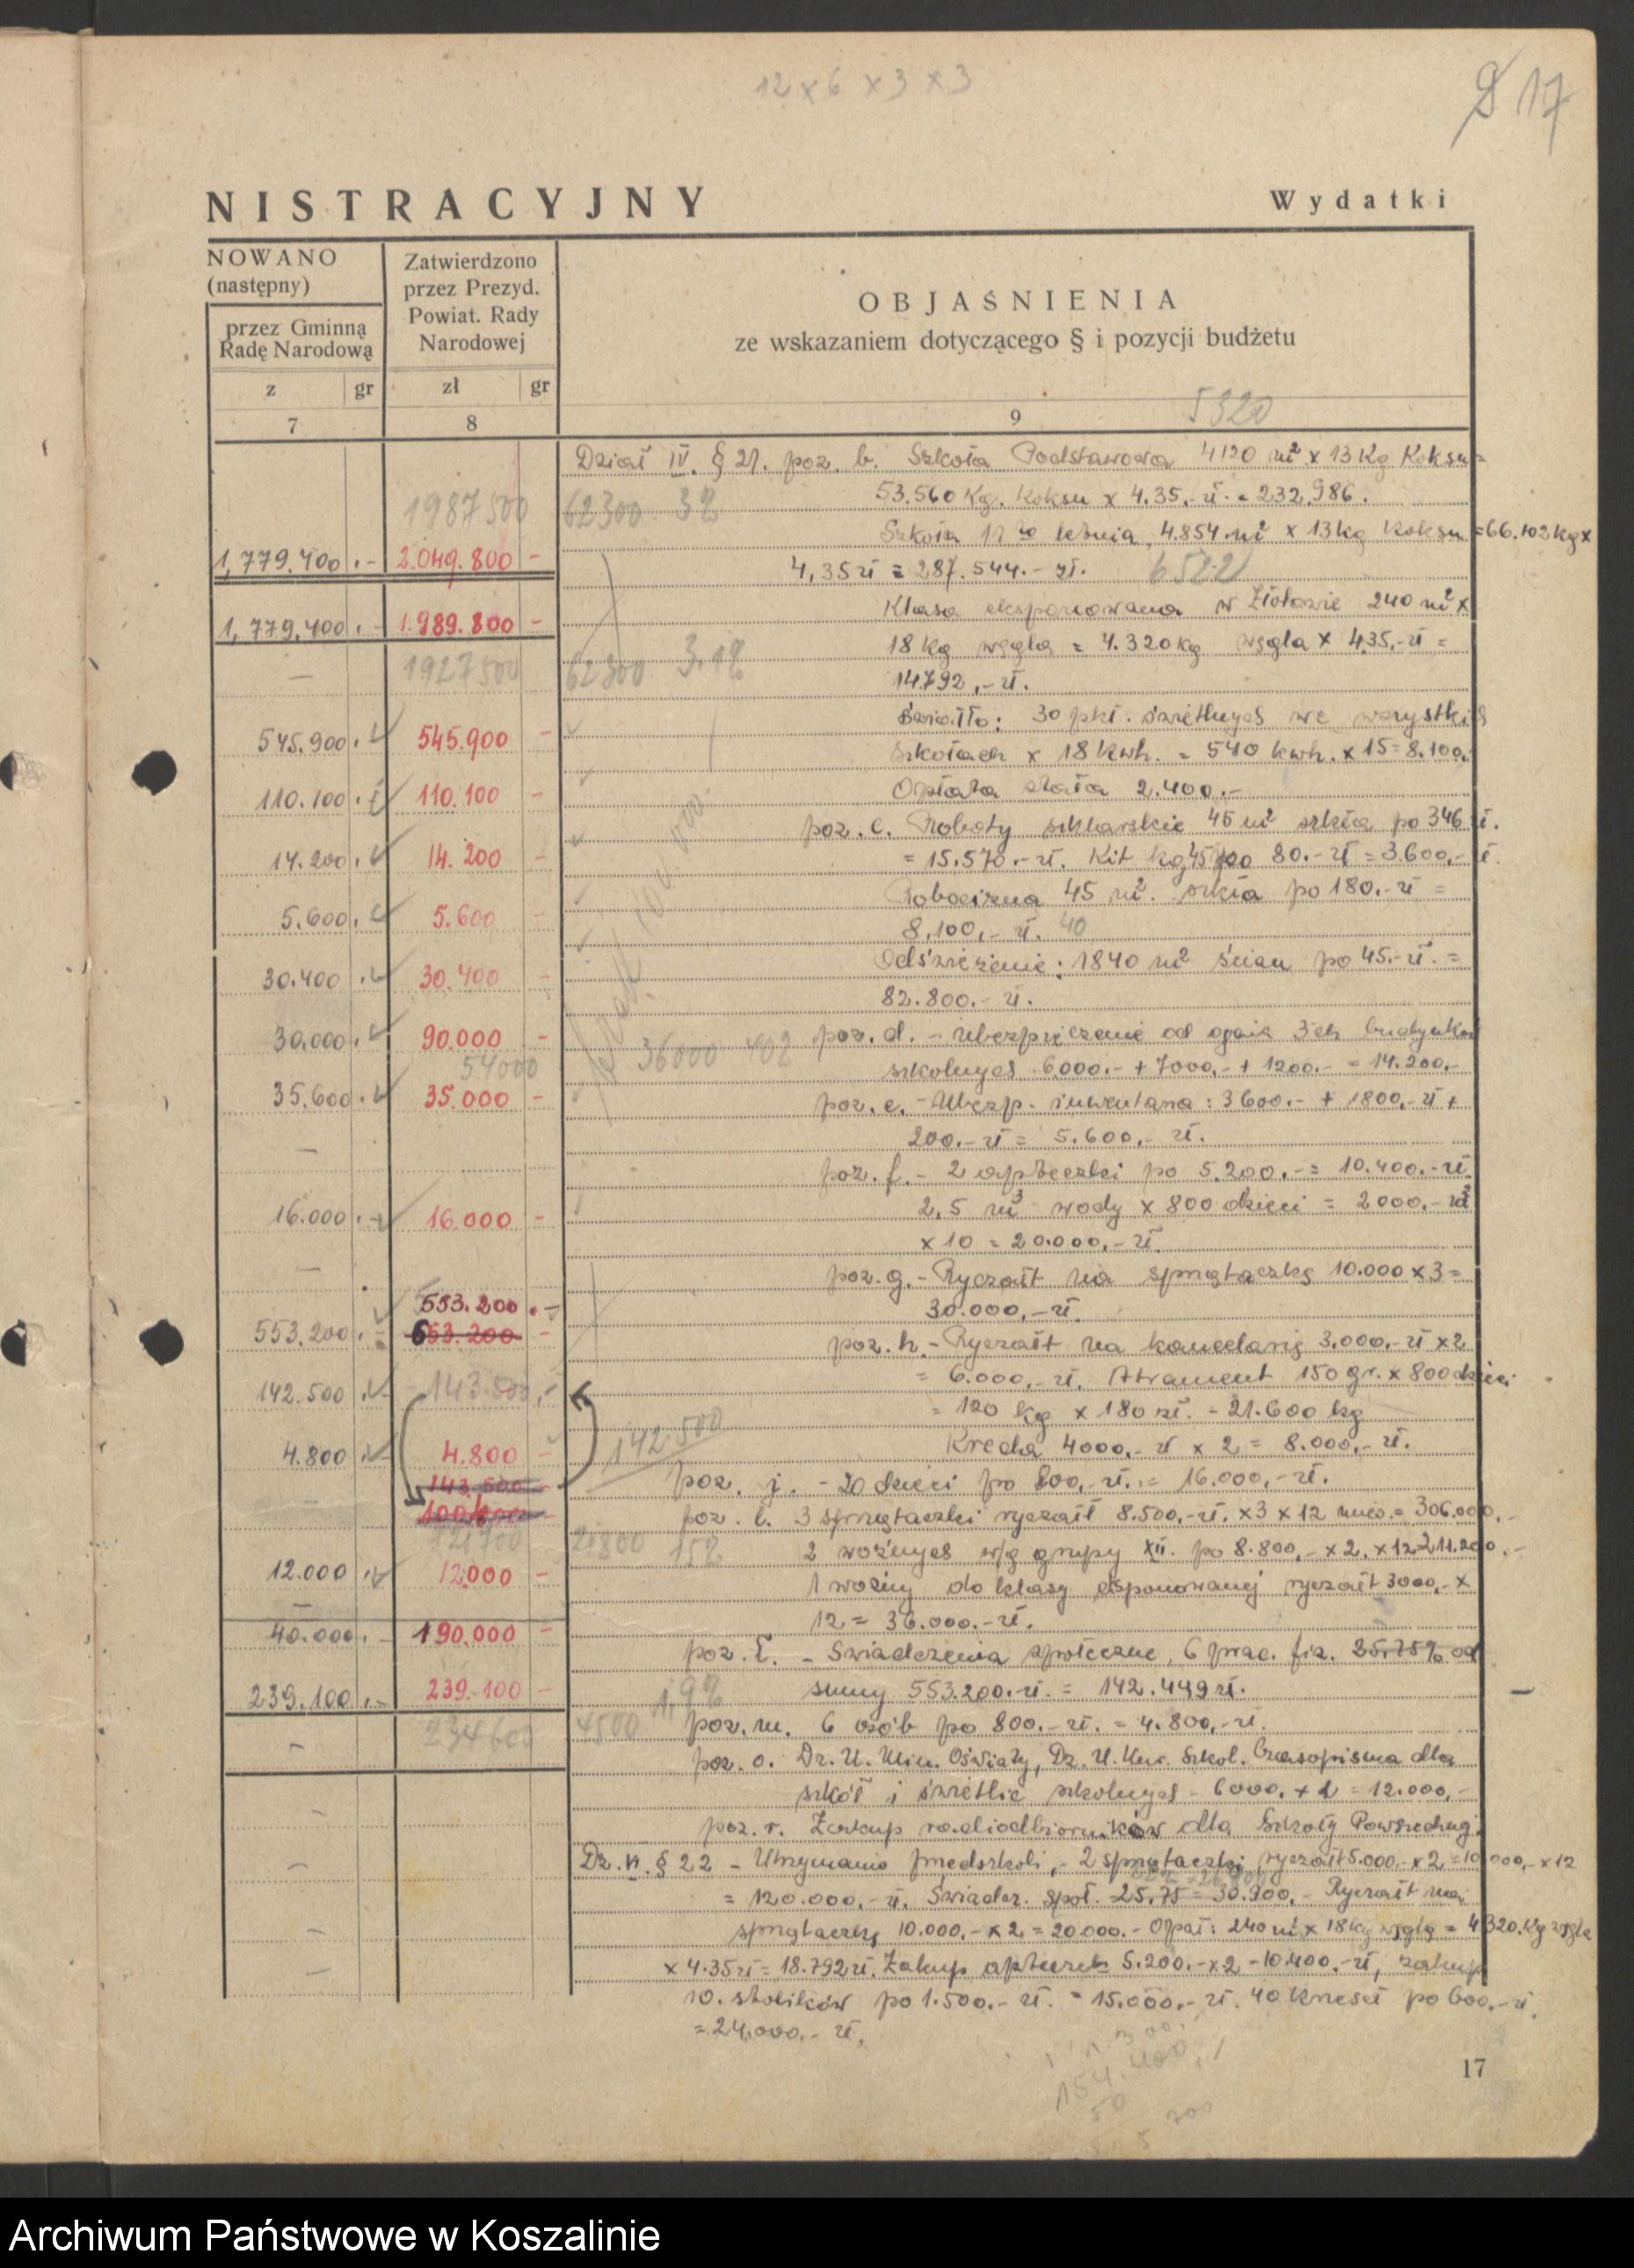 12 x 6 x 3 x 3
17
NISTRACYJNY
Wydatki
NOWANO
(następny)
przez Gminną
Radę Narodową
z gr
7
Zatwierdzono
przez Prezyd.
Powiat. Rady
Narodowej
zł gr
8
OBJAŚNIENIA
ze wskazaniem dotyczącego § i pozycji budżetu
9
5320
1987500
1,779.400.- 2.049.800 -
1,779,400.- 1.989.800 -
- 1927500
545.900. 545.900 -
110.100. 110.100 -
14.200. 14.200 -
5.600. 5.600 -
30.400. 30.400 -
30.000. 90.000 -
54000
35.600. 35.000 -
-
16.000.- 16.000 -
-
553.200.-
553.200.- 653.200 -
142.500. 143.500.-
4.800. 4.800 -
143.500
-
12.000. 12.000 -
-
40.000.- 190.000 -
239.100.- 239.100 -
- 234600
62300 3%
62300 3,1%
36000 40%
142.500
21800 15%
4500 1,9%
Dział IV. § 21. poz. b. Szkoła Podstawowa 4120 m² x 13 Kg Koksu =
53.560 Kg. Koksu x 4.35,- zł. = 232.986.
Szkoła 11 to letnia, 4.854 m² x 13 kg Koksu = 66.102 kg x
4,35 zł = 287.544.- zł.
Klasa eksponowana w 240 m² x
18 kg węgla = 4.320 kg węgla x 4,35,- zł =
14792,- zł.
Światło: 30 pkt. świetlnych we wszystkich
szkołach x 18 kwh. = 540 kwh. x 15 = 8.100,-
Opłata stała 2.400.-
poz. c. Roboty szklarskie 45 m² szkła po 346 zł.
= 15.570.- zł. Kit kg 45 po 80.- zł = 3.600,- zł.
Robocizna 45 m². szkła po 180.- zł =
8.100,- zł. 40
Odświeżenie: 1840 m² ścian po 45.- zł. =
82.800.- zł.
poz. d. - Ubezpieczenie od ognia 3 ch budynków
szkolnych 6000.- + 7000.- + 1200.- = 14.200.-
poz. e. - Ubezp. inwentarza: 3600.- + 1800,- zł +
200.- zł = 5.600,- zł.
poz. f. - 2 apteczki po 5.200.- = 10.400.- zł.
2,5 m³ wody x 800 dzieci = 2000.- m³
x 10 = 20.000,- zł.
poz. g. - Ryczałt na sprzątaczkę 10.000 x 3 =
30.000,- zł.
poz. h. - Ryczałt na kancelarię 3.000,- zł x 2
= 6.000,- zł. Atrament 150 gr. x 800 dzieci
= 120 kg x 180 zł. - 21.600 kg
Kreda 4000,- zł x 2 = 8.000,- zł.
poz. j. - 20 dzieci po 800,- zł. = 16.000,- zł.
poz. l. 3 sprzątaczki ryczałt 8.500,- zł. x 3 x 12 mies. = 306.000,-
2 woźnych w/g grupy XII. po 8.800,- x 2. x 12 211.200.-
1 woźny do klasy eksponowanej ryczałt 3000,- x
12 = 36.000.- zł.
poz. ł. - Świadczenia społeczne, 6 prac. fiz. 25.75% od
sumy 553.200.- zł. = 142.449 zł.
poz. m. 6 osób po 800.- zł. = 4.800,- zł.
poz. o. Dz. U. Min. Oświaty, Dz. U. Kur. Szkol. Czasopisma dla
szkół i świetlic szkolnych - 6000. x 2 = 12.000,-
poz. r. Zakup radioodbiorników dla Szkoły Powszechnej.
Dz. VI. § 22 - Utrzymanie przedszkoli, - 2 sprzątaczki ryczałt 5.000,- x 2 = 10.000,- x 12
= 120.000,- zł. Świadcz. społ. 25.75 = 30.900,- Ryczałt na
sprzątaczkę 10.000,- x 2 = 20.000.- Opał: 240 m² x 18 kg węgla = 4320. kg węgla
x 4.35 zł = 18.792 zł. Zakup apteczek 5.200.- x 2 - 10.400.- zł, zakup
10. stolików po 1.500.- zł. = 15.000,- zł. 40 krzeseł po 600,- zł.
= 24.000.- zł.
154.400
17
Archiwum Państwowe w Koszalinie